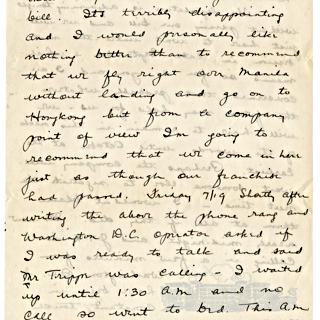 bill. It's terribly disappointing
and I would personally like
nothing better than to recommend
that we fly right over Manila
without landing and go on to
Hongkong but from a company
point of view I'm going to
recommend that we come in here
just as though our franchise
had passed. Friday 7/19 Shortly after
writing the above the phone rang and
Washington D.C. operator asked if
I was ready to talk and said
Mr Trippe was calling - I waited
up until 1:30 A.M and no
call so went to bed. This A.M